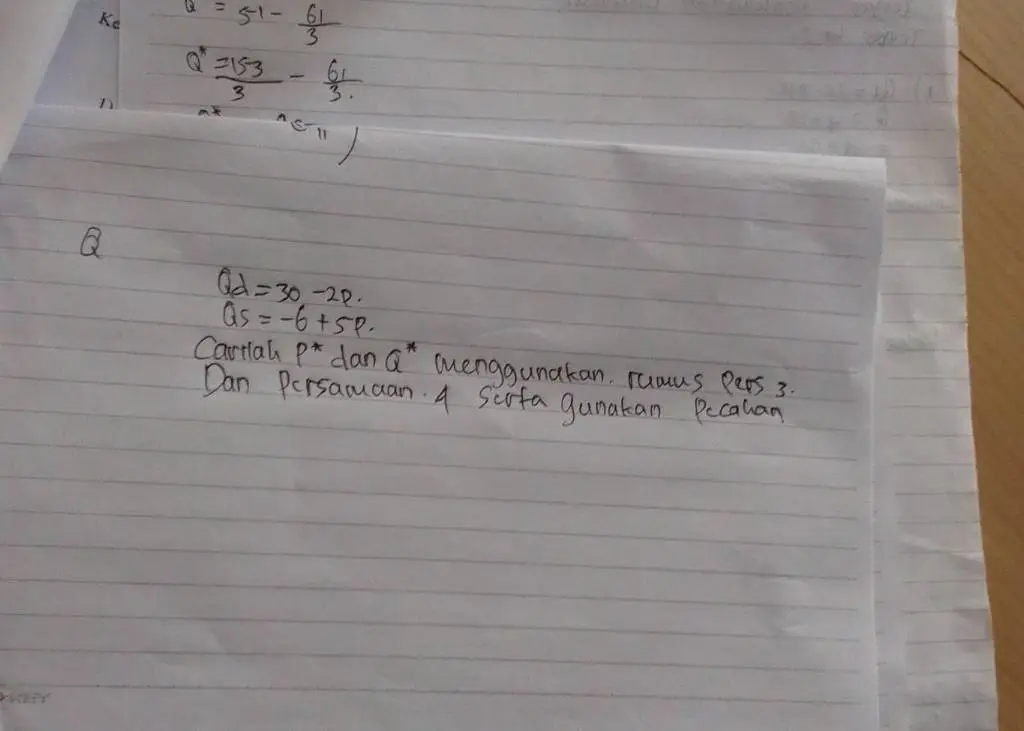 Q = 51 - 61/3
Q* = 153/3 - 61/3.
Q
Qd = 30 - 2P.
Qs = -6 + 5P.
Carilah P* dan Q* menggunakan. rumus Pers 3.
Dan Persamaan. 4 serta gunakan Pecahan